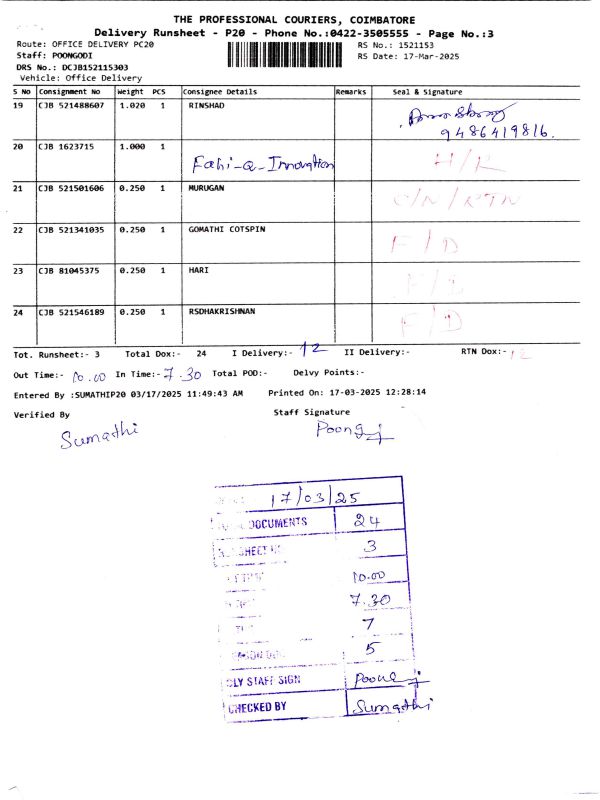 THE PROFESSIONAL COURIERS, COIMBATORE
Delivery Runsheet - P20 - Phone No.:0422-3505555 - Page No.:3
Route: OFFICE DELIVERY PC20
RS No.: 1521153
Staff: POONGODI
RS Date: 17-Mar-2025
DRS No.: DCJB152115303
Vehicle: Office Delivery
S No Consignment No Weight PCS Consignee Details Remarks Seal & Signature
19 CJB 521488607 1.020 1 RINSHAD
9486419816.
20 CJB 1623715 1.000 1 H/R
Fahi-a-Innovation
21 CJB 521501606 0.250 1 MURUGAN C/N/RTN
22 CJB 521341035 0.250 1 GOMATHI COTSPIN F/D
23 CJB 81045375 0.250 1 HARI
24 CJB 521546189 0.250 1 RSDHAKRISHNAN F/D
Tot. Runsheet:- 3 Total Dox:- 24 I Delivery:- 12 II Delivery:- RTN Dox:- 12
Out Time:- 10.00 In Time:- 7.30 Total POD:- Delvy Points:-
Entered By :SUMATHIP20 03/17/2025 11:49:43 AM Printed On: 17-03-2025 12:28:14
Verified By Staff Signature
Sumathi Poong
17/03/25
DOCUMENTS 24
3
10.00
7.30
7
5
DLY STAFF SIGN
CHECKED BY Sumathi